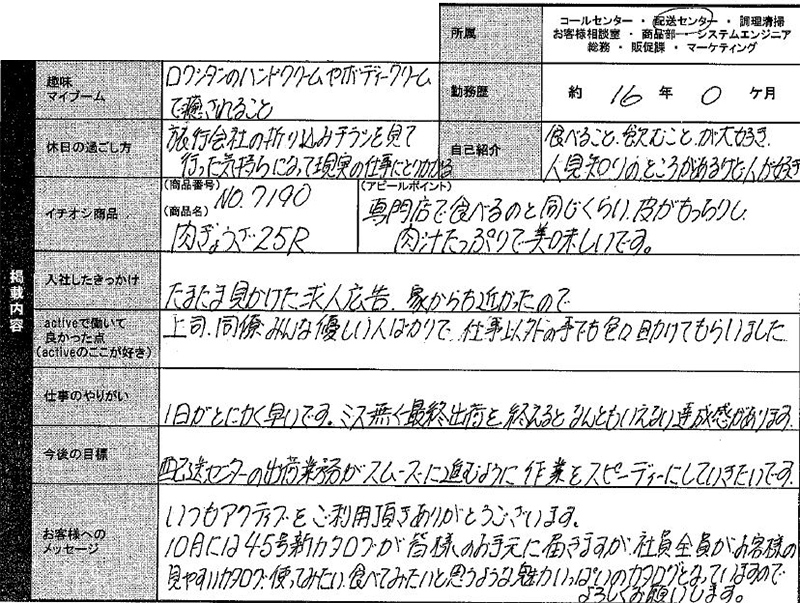 所属
コールセンター・配送センター・調理清掃
お客様相談室・商品部・システムエンジニア
総務・販促課・マーケティング
掲載内容
趣味
マイブーム
ロクシタンのハンドクリームやボディークリーム
で癒されること
勤務歴
約 16 年 0 ケ月
休日の過ごし方
旅行会社の折り込みチラシを見て
行った気持ちになって現実の仕事にとりかかる
自己紹介
食べること、飲むこと、が大好き、
人見知りのところがあるけど人が好き
イチオシ商品
(商品番号) NO.7190
(商品名)
肉ぎょうざ25R
(アピールポイント)
専門店で食べるのと同じくらい、皮がもっちりし
肉汁たっぷりで美味しいです。
入社したきっかけ
たまたま見かけた求人広告、家からも近かったので
activeで働いて
良かった点
(activeのここが好き)
上司、同僚みんな優しい人ばかりで、仕事以外の事でも色々助けてもらいました
仕事のやりがい
1日がとにかく早いです。ミス無く最終出荷を終えるとなんともいえない達成感があります。
今後の目標
配送センターの出荷業務がスムーズに進むように作業をスピーディーにしていきたいです。
お客様への
メッセージ
いつもアクティブをご利用頂きありがとうございます。
10月には45号新カタログが皆様のお手元に届きますが、社員全員がお客様の
見やすいカタログ、使ってみたい、食べてみたいと思うような魅力いっぱいのカタログとなっていますので
よろしくお願いします。